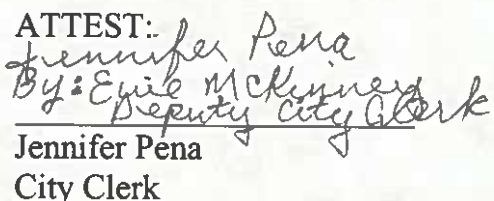 ATTEST:
Jennifer Pena
By: Evie McKinney
Deputy City Clerk
Jennifer Pena
City Clerk